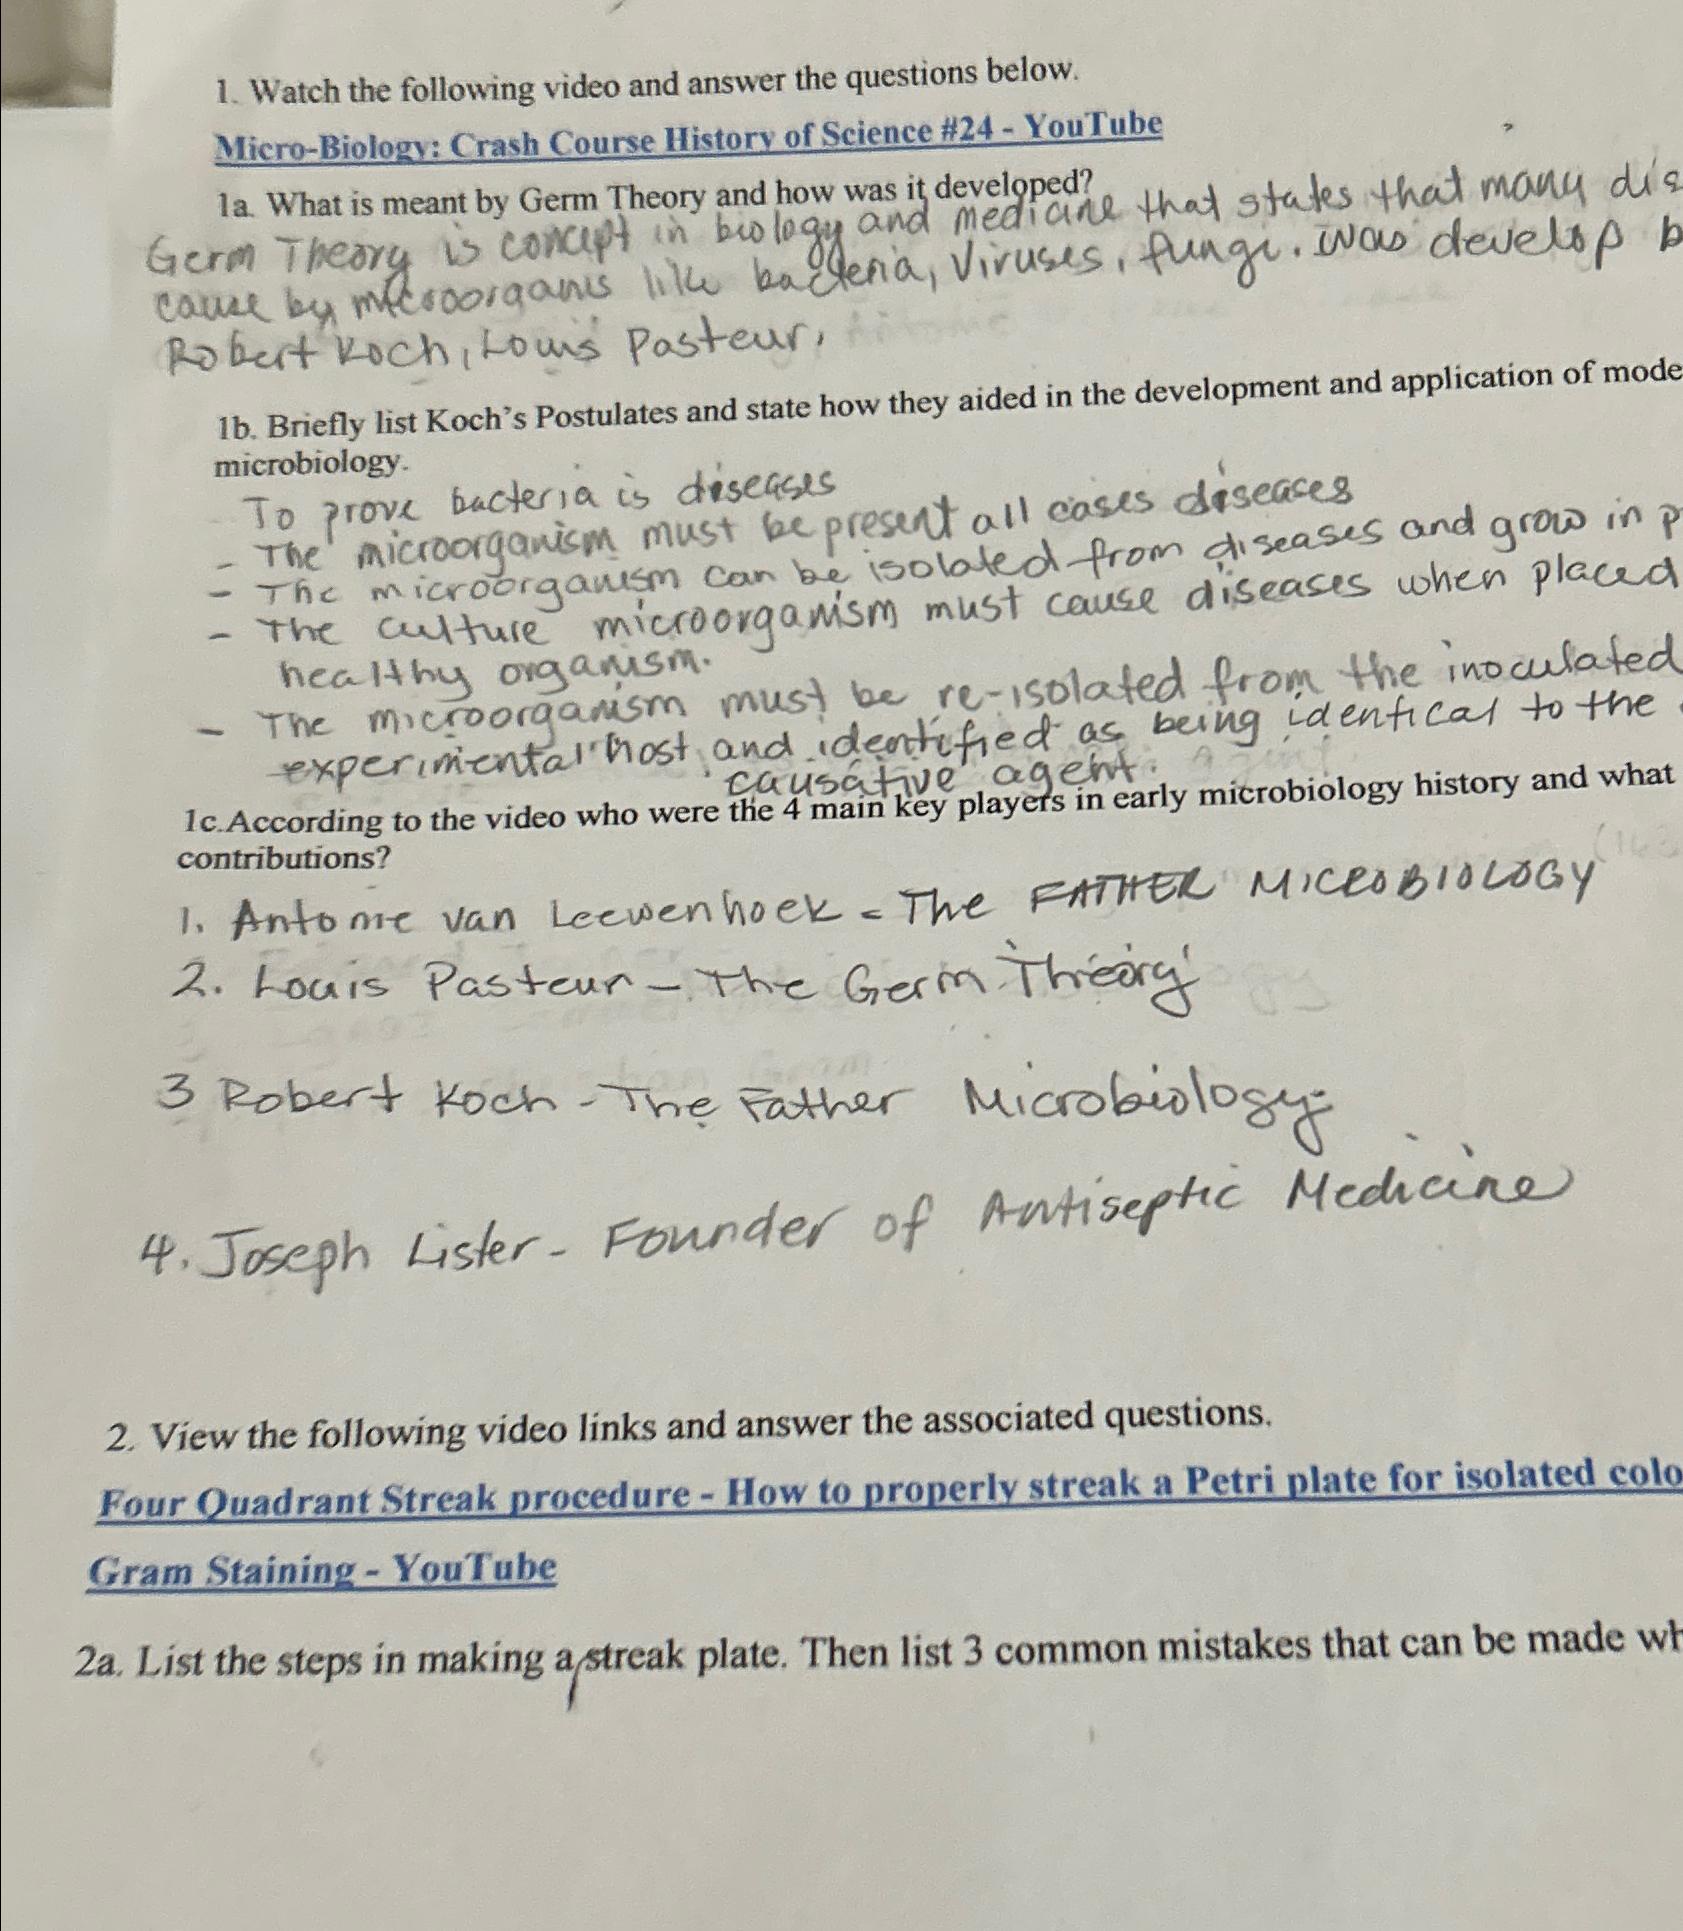 1. Watch the following video and answer the questions below.
Micro-Biology: Crash Course History of Science #24 - YouTube
1a. What is meant by Germ Theory and how was it developed?
Germ Theory is concept in biology and medicine that states that many dis
cause by microorganis like bacteria, Viruses, fungi. was develop b
Robert Koch, Louis Pasteur,
1b. Briefly list Koch's Postulates and state how they aided in the development and application of mode
microbiology.
To prove bacteria is diseases
- The microorganism must be present all cases diseases
- The microorganism can be isolated from diseases and grow in p
- The culture microorganism must cause diseases when placed
healthy organism.
- The microorganism must be re-isolated from the inoculated
experimental host and identified as being identical to the
causative agent.
1c.According to the video who were the 4 main key players in early microbiology history and what
contributions?
1. Antonie van Leewenhoek = The FATHER MICROBIOLOGY
2. Louis Pasteur - The Germ Theory
3 Robert Koch - The Father Microbiology
4. Joseph Lister - Founder of Antiseptic Medicine
2. View the following video links and answer the associated questions.
Four Quadrant Streak procedure - How to properly streak a Petri plate for isolated colo
Gram Staining - YouTube
2a. List the steps in making a streak plate. Then list 3 common mistakes that can be made wh